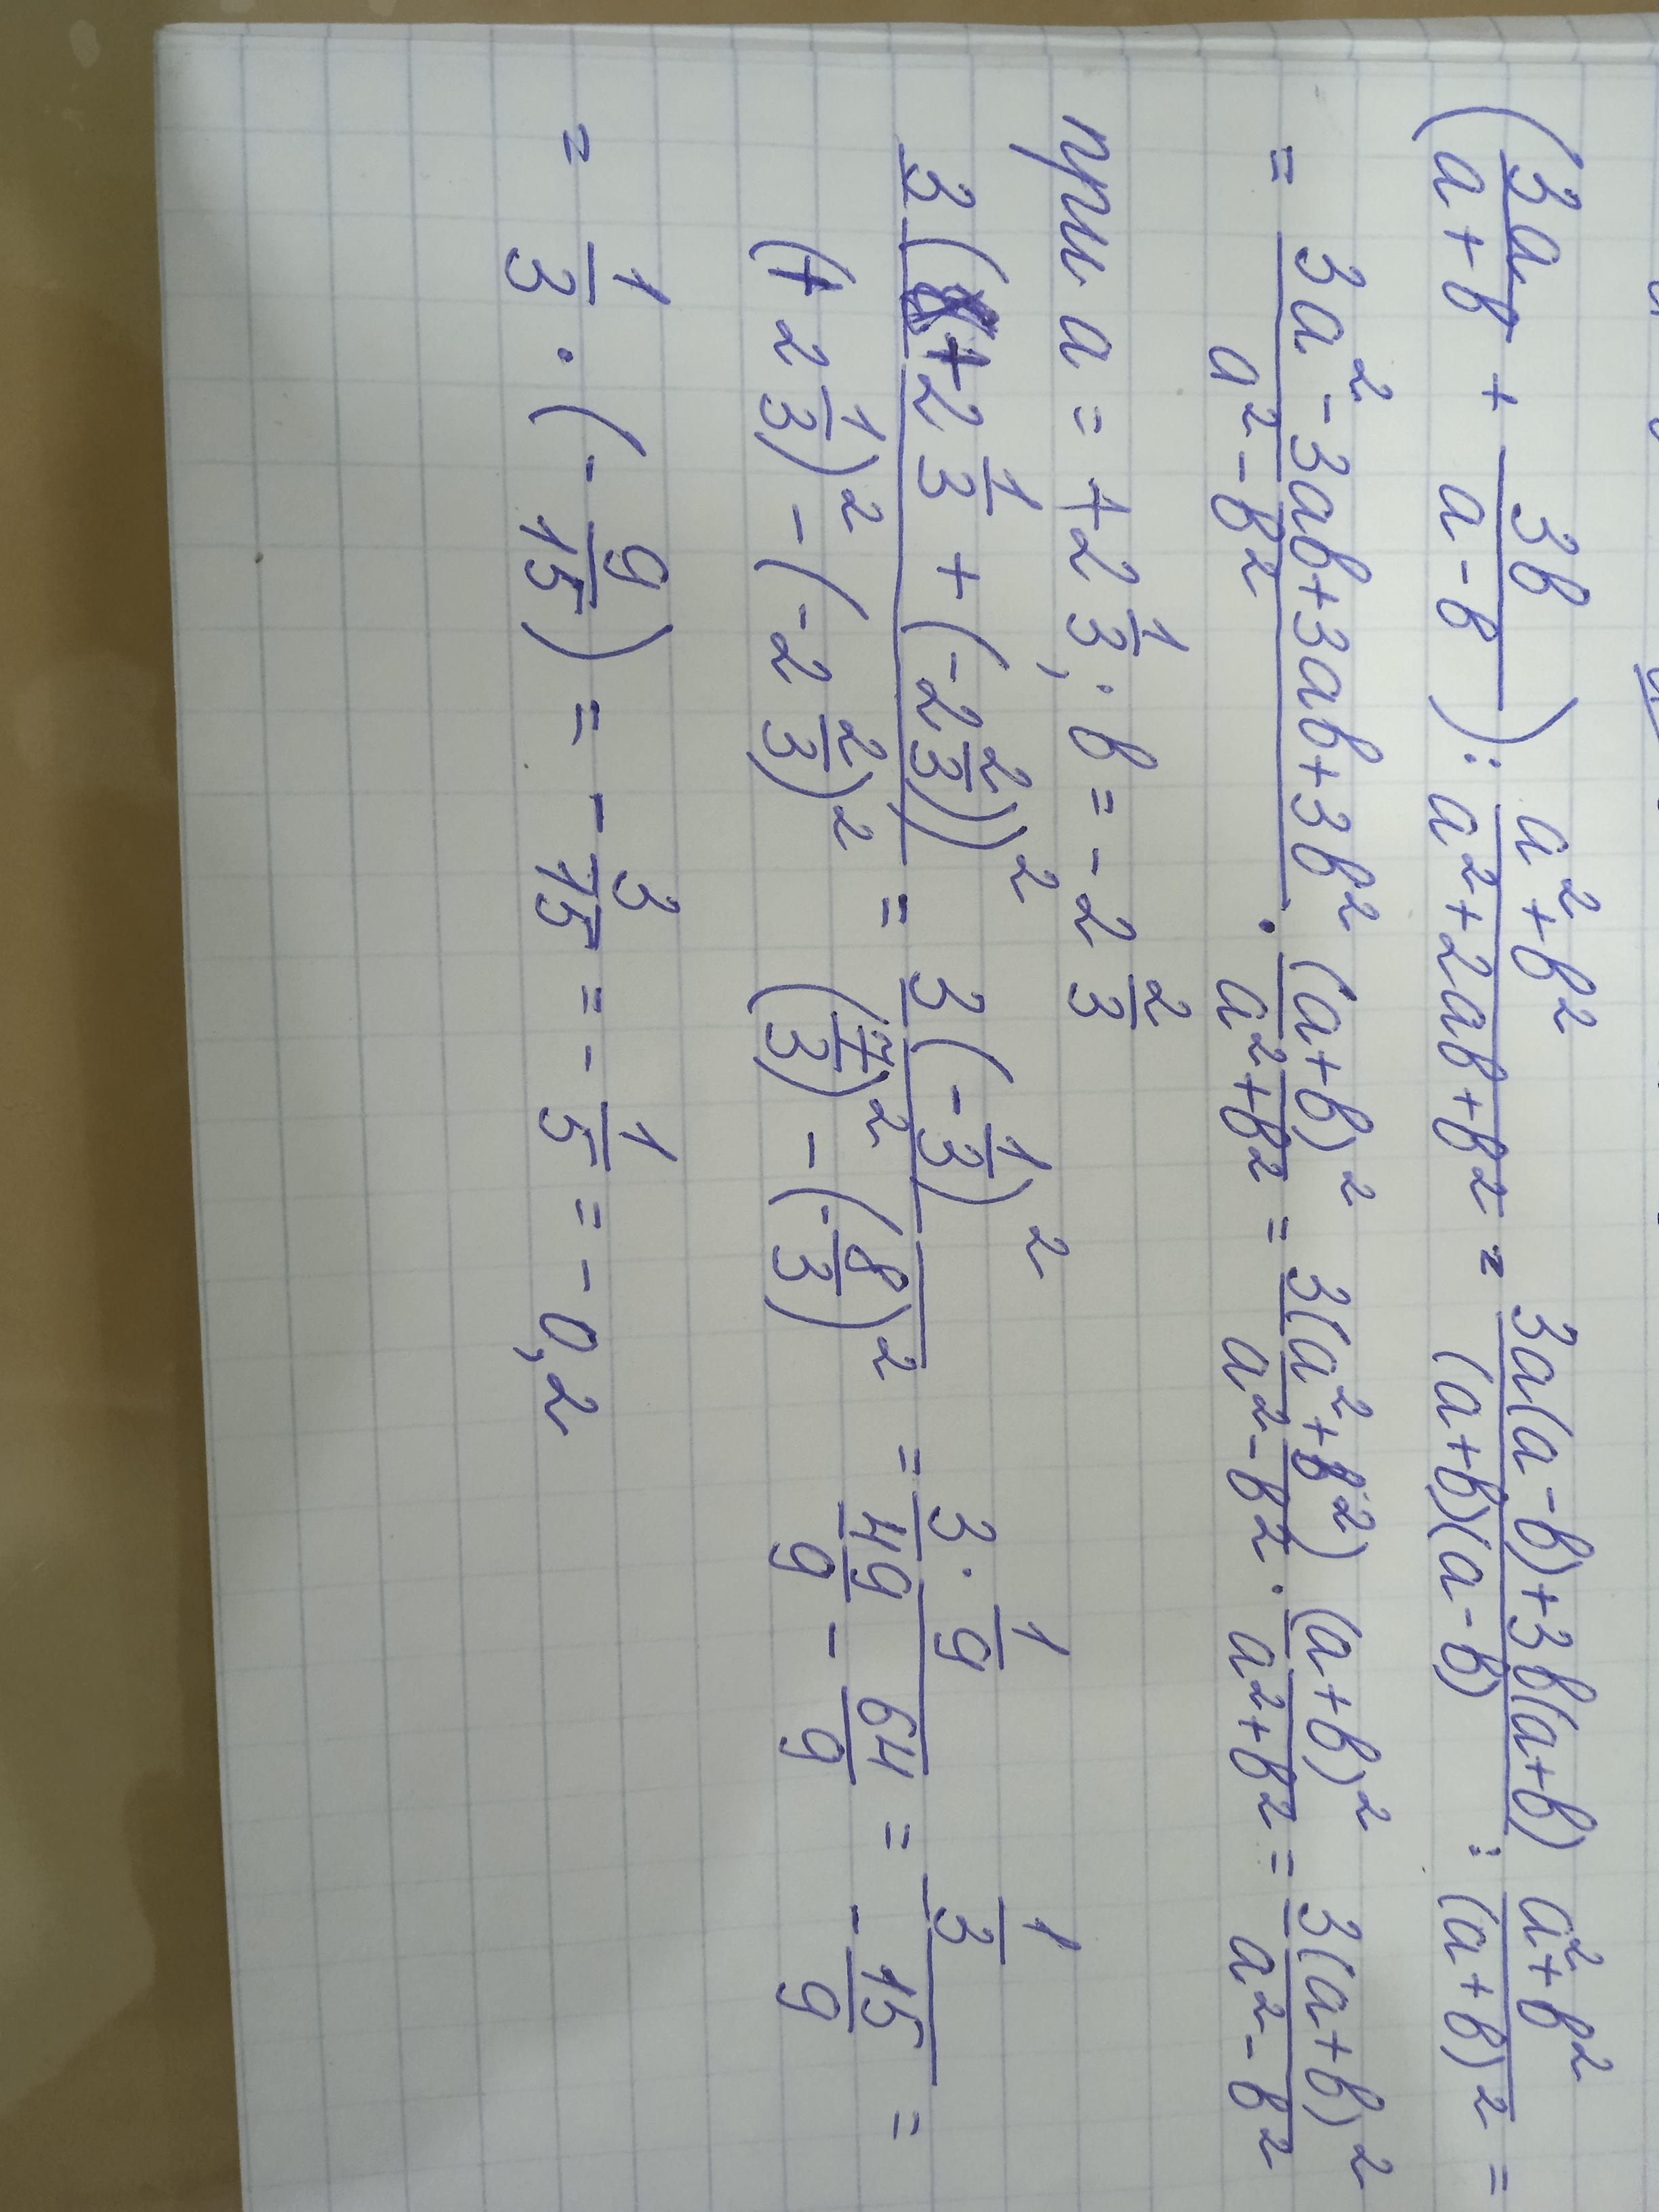 (3a/(a+b) + 3b/(a-b)) : (a²+b²)/(a²+2ab+b²) = (3a(a-b)+3b(a+b))/((a+b)(a-b)) : (a²+b²)/(a+b)² =
= (3a²-3ab+3ab+3b²)/(a²-b²) · (a+b)²/(a²+b²) = 3(a²+b²)/(a²-b²) · (a+b)²/(a²+b²) = 3(a+b)²/(a²-b²)
при a = +2 1/3; b = -2 2/3
3(+2 1/3 + (-2 2/3))²/((+2 1/3)² - (-2 2/3)²) = 3(-1/3)²/((7/3)² - (-8/3)²) = (3 · 1/9)/(49/9 - 64/9) = (1/3)/(-15/9) =
= 1/3 · (-9/15) = -3/15 = -1/5 = -0,2